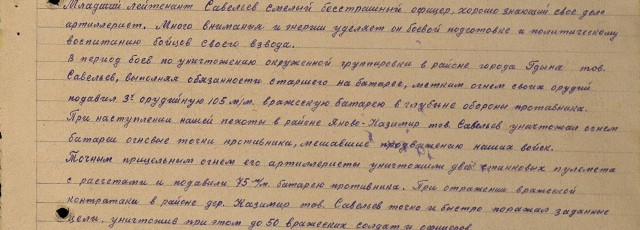 Младший лейтенант Савельев смелый бесстрашный офицер, хорошо знающий свое дело
артиллерист. Много внимания и энергии уделяет он боевой подготовке и политическому
воспитанию бойцов своего взвода.
В период боев по уничтожению окруженной группировки в районе города Гдыня тов.
Савельев, выполняя обязанности старшего на батарее, метким огнем своих орудий
подавил 3х орудийную 105 м/м. вражескую батарею в глубине обороны противника.
При наступлении нашей пехоты в районе Яново-Казимир тов. Савельев уничтожал огнем
батареи огновые точки противника, мешавшие продвижению наших войск.
Точным прицельным огнем его артиллеристы уничтожили два станковых пулемета
с расчетами и подавили 75 м/м. батарею противника. При отражении вражеской
контратаки в районе дер. Казимир тов. Савельев точно и быстро поражал заданные
цели, уничтожив при этом до 50 вражеских солдат и офицеров.